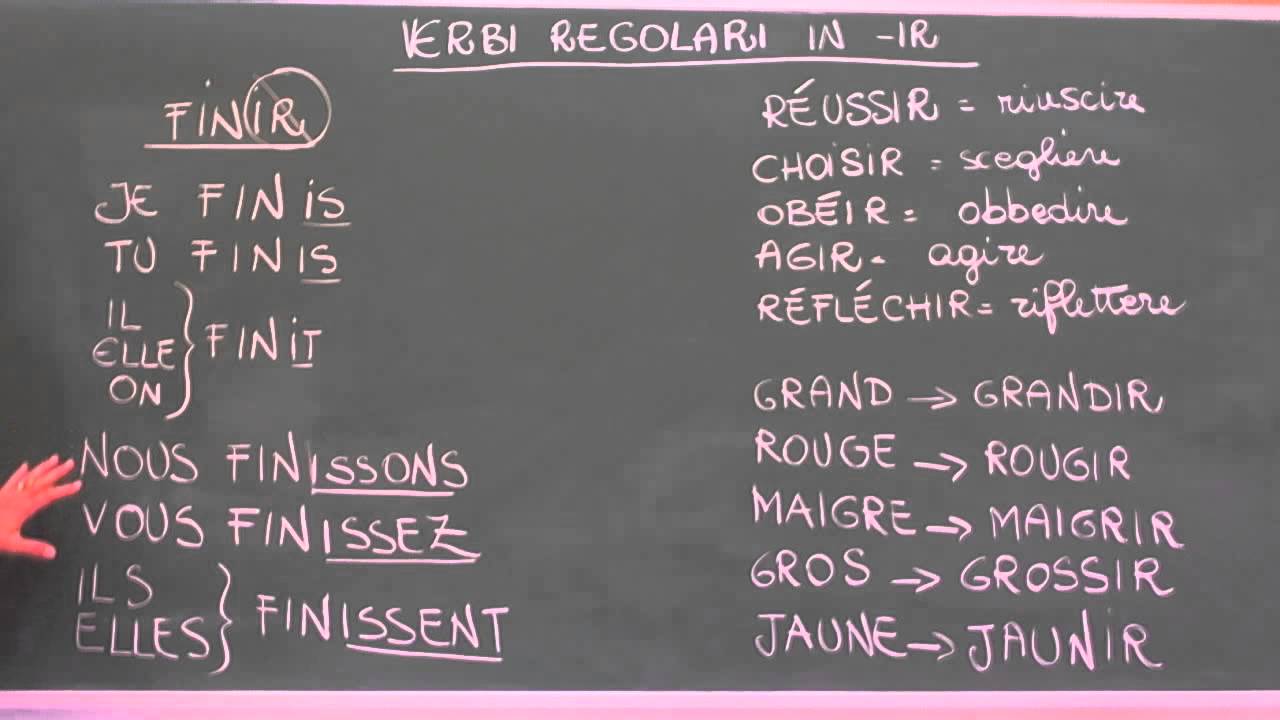 VERBI REGOLARI IN -IR
FINIR
JE FINIS
TU FINIS
IL
ELLE
ON
FINIT
NOUS FINISSONS
VOUS FINISSEZ
ILS
ELLES
FINISSENT
RÉUSSIR = riuscire
CHOISIR = scegliere
OBÉIR = obbedire
AGIR = agire
RÉFLÉCHIR = riflettere
GRAND → GRANDIR
ROUGE → ROUGIR
MAIGRE → MAIGRIR
GROS → GROSSIR
JAUNE → JAUNIR